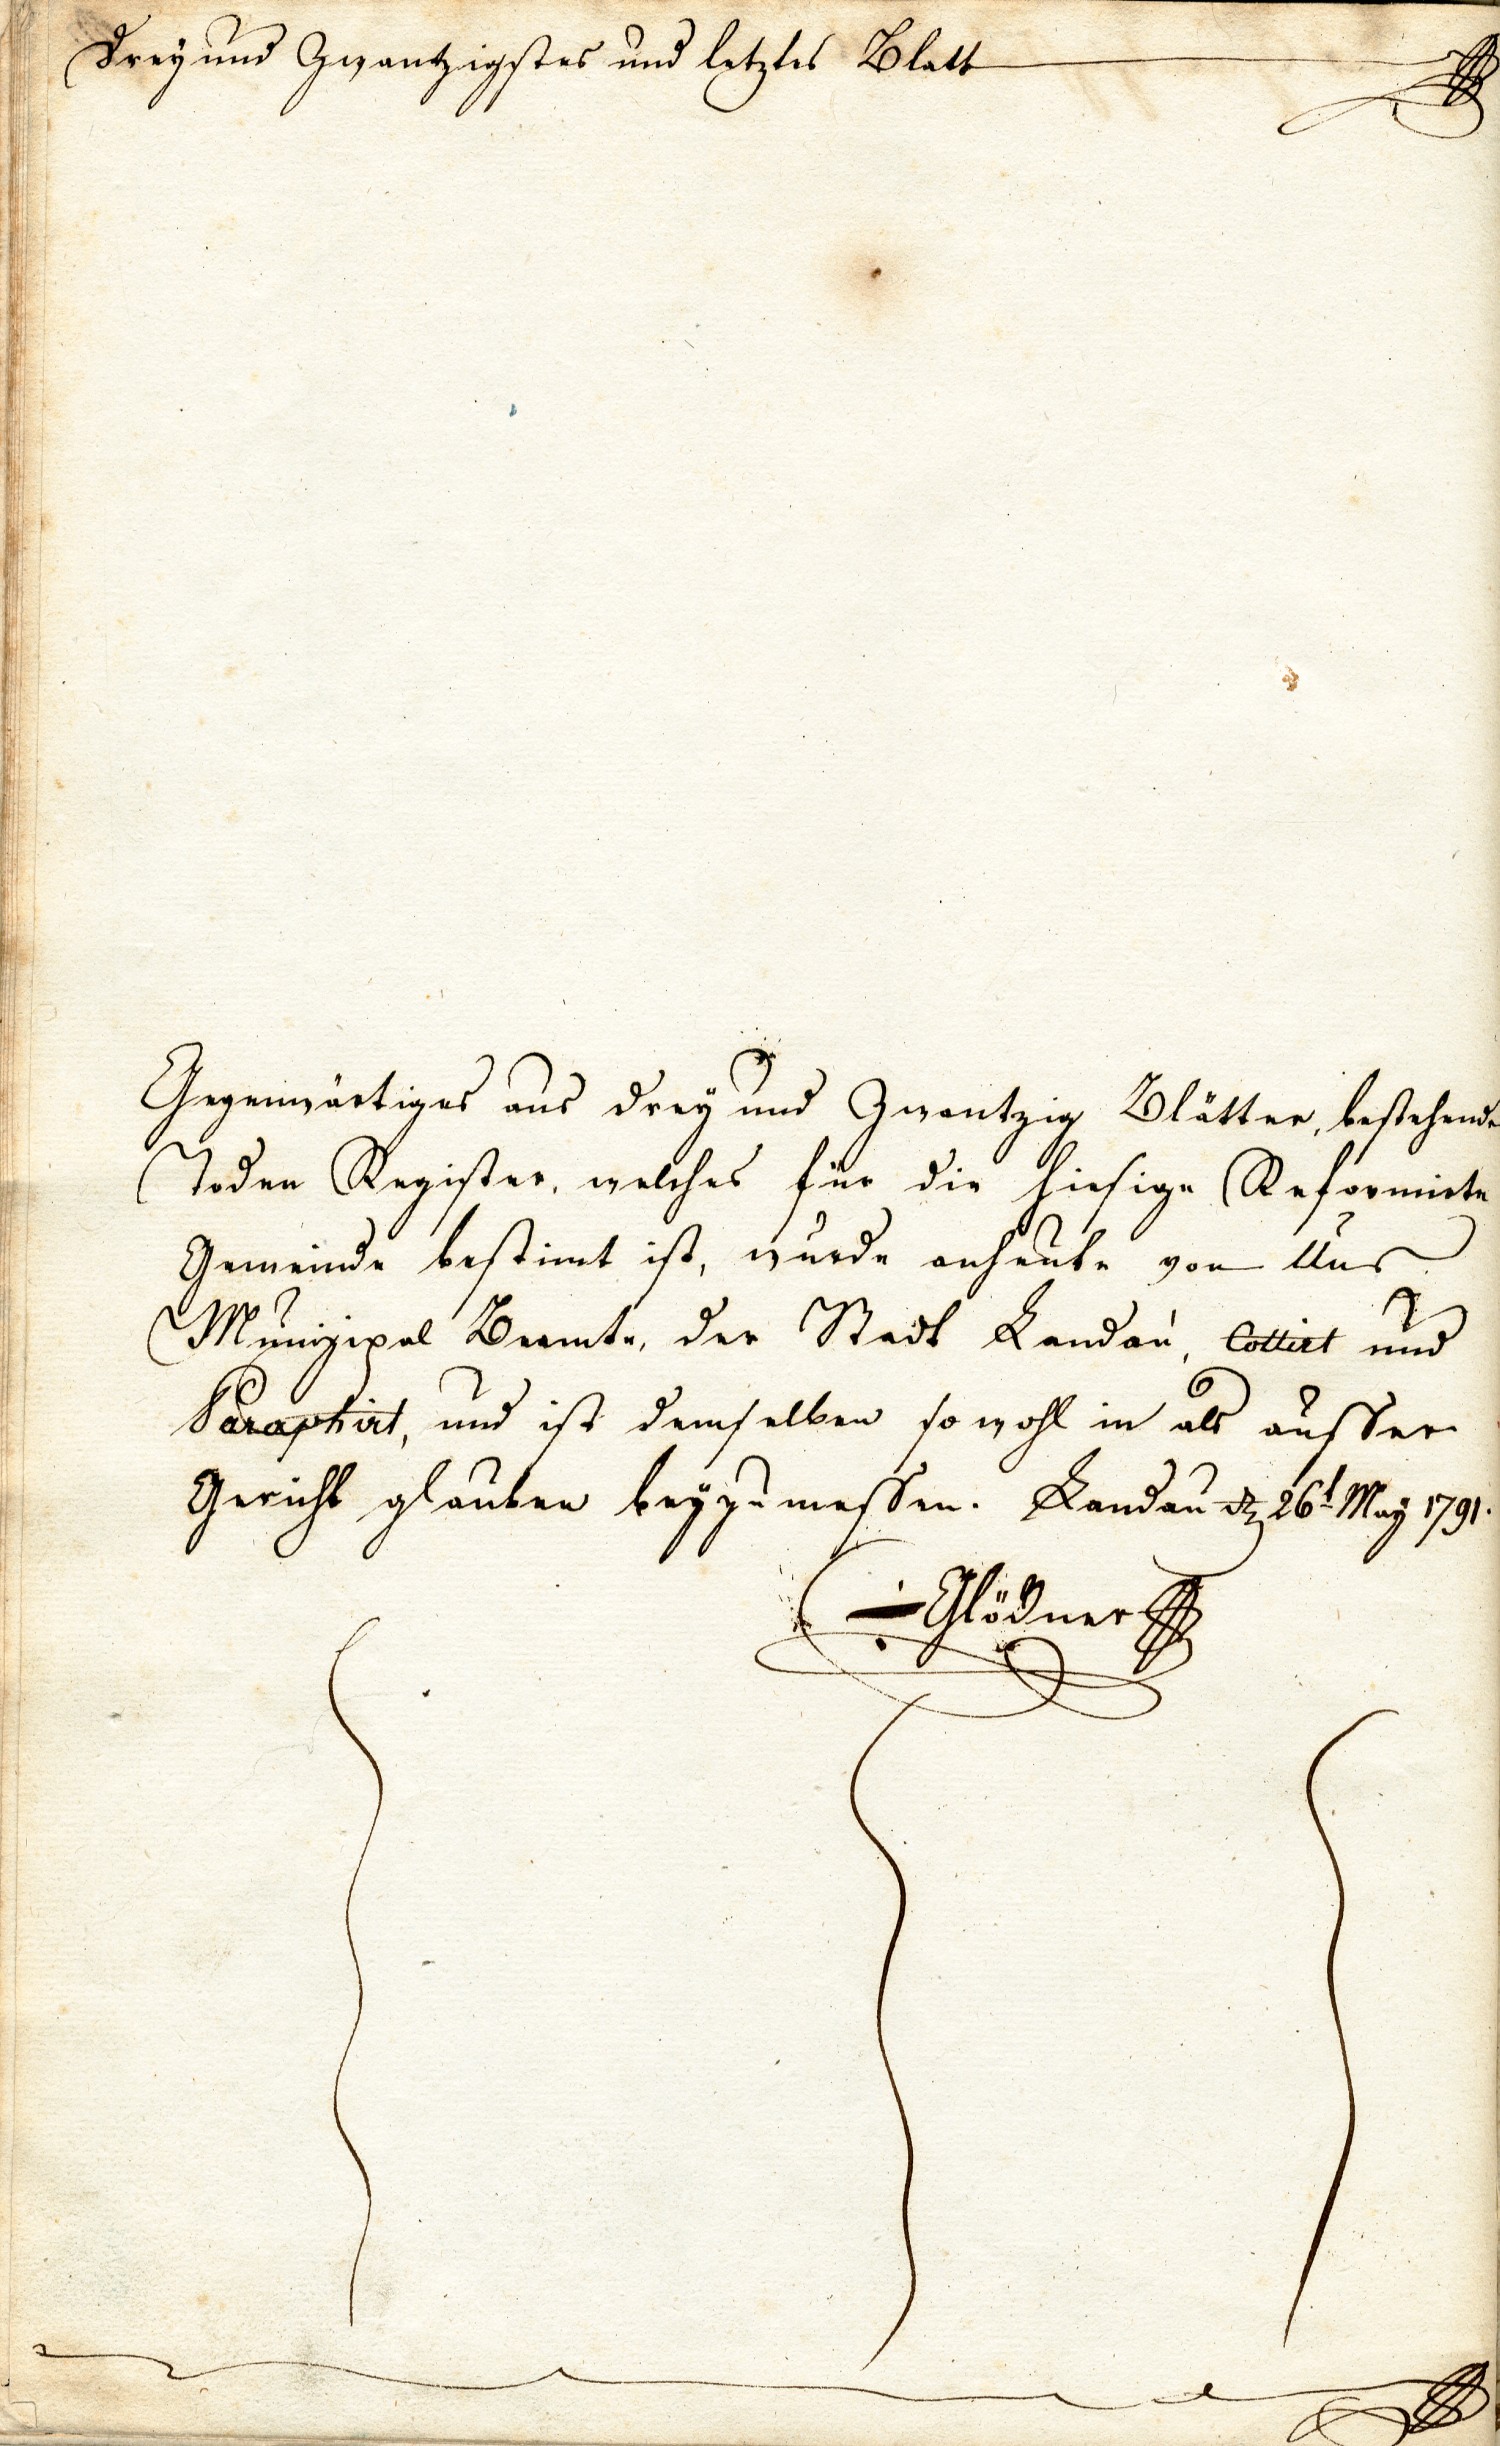 Drey und Zwantzigstes und letztes Blatt
Gegenwärtiges aus drey und Zwantzig Blätter, bestehende
Toden Register, welches für die hiesige Reformirte
Gemeinde bestimt ist, wurde anheute von Uns
Munizipal Beamte, der Stadt Landau, Cottirt und
Paraphirt, und ist demselben so wohl in als ausser
Gericht glauben beyzumessen. Landau d 26t May 1791.